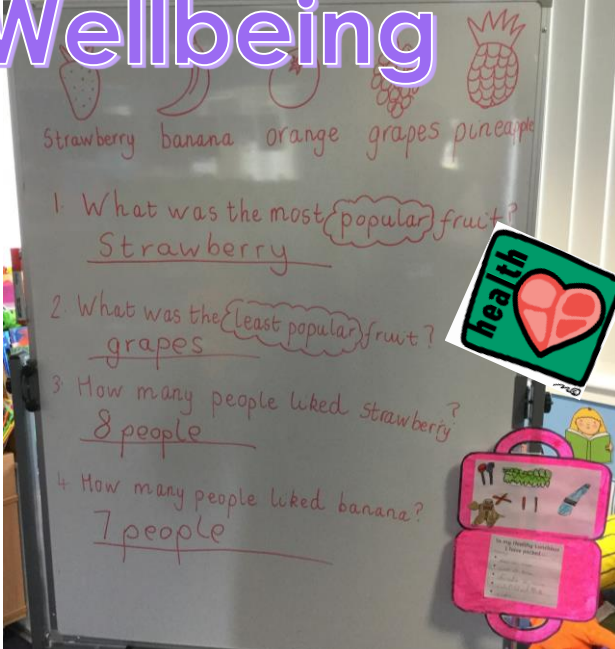 Wellbeing
Strawberry banana orange grapes pineapple
1. What was the most popular fruit?
Strawberry
health
2. What was the least popular fruit?
grapes
3. How many people liked strawberry?
8 people
4. How many people liked banana?
7 people
In my Healthy Lunchbox
I have packed...